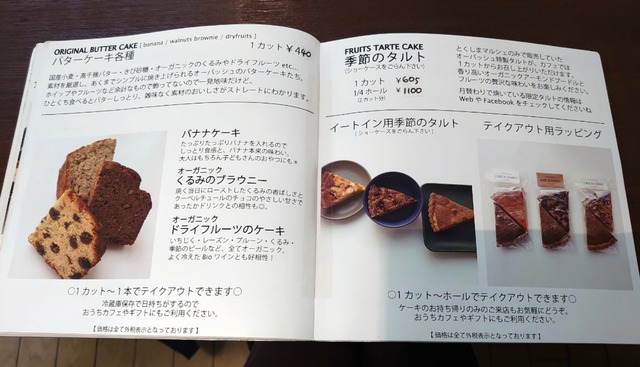 ORIGINAL BUTTER CAKE [ banana / walnuts brownie / dryfruits ]
バターケーキ各種
1カット ¥440
国産小麦・高千穂バター・きび砂糖・オーガニックのくるみやドライフルーツ etc...
素材を厳選し、あくまでシンプルに焼き上げられるオーパッシュのバターケーキたち。
ホイップやフルーツなど余計なもので飾ってないので一見地味だけど、
ひとくち食べるとバターしっとり。雑味なく素材のおいしさがストレートにわかります。
バナナケーキ
たっぷりたっぷりバナナを入れるので
しっとり食感と、バナナ本来の味わい。
大人はもちろん子どもさんのおやつにも
オーガニック
くるみのブラウニー
焼く当日にローストしたくるみの香ばしさと
クーベルチュールのチョコのやさしい甘さで
あったかドリンクとの相性も◎。
オーガニック
ドライフルーツのケーキ
いちじく・レーズン・プルーン・くるみ・
季節のピールなど、全てオーガニック。
よく冷えた Bio ワインとも好相性!
○1カット〜1本でテイクアウトできます○
冷蔵庫保存で日持ちがするので
おうちカフェやギフトにもご利用ください。
【価格は全て外税表示となっております】
FRUITS TARTE CAKE
季節のタルト
(ショーケースをごらん下さい)
1カット ¥605
1/4ホール ¥1100
(2カット分)
とくしまマルシェのみで販売していた
オーパッシュ特製タルトが、カフェでは
1カットからお召し上がりいただけます。
香り高いオーガニックアーモンドプードルと
フルーツの贅沢な味わいをお楽しみください。
月替わりで焼いている限定タルトの情報は
Web や Facebook をチェックしてくださいね
イートイン用季節のタルト
(ショーケースをごらん下さい)
テイクアウト用ラッピング
○1カット〜ホールでテイクアウトできます○
ケーキのお持ち帰りのみのご来店もお気軽にどうぞ。
おうちカフェやギフトにもご利用ください。
【価格は全て外税表示となっております】